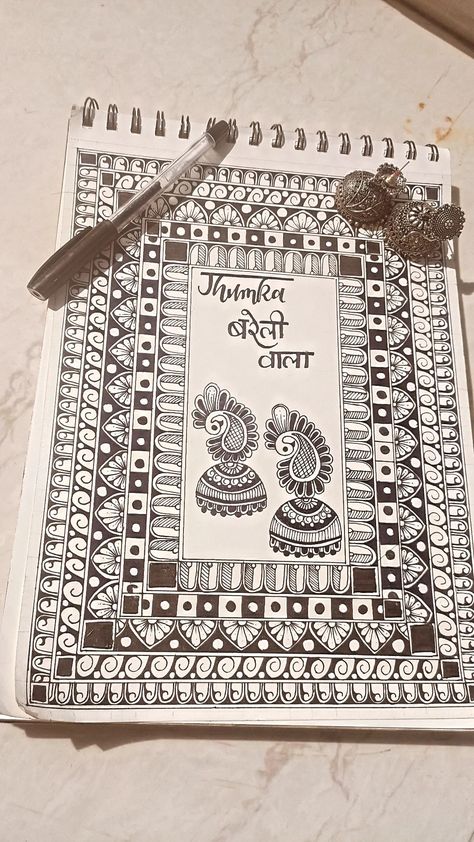 Jhumka
बरेली
वाला